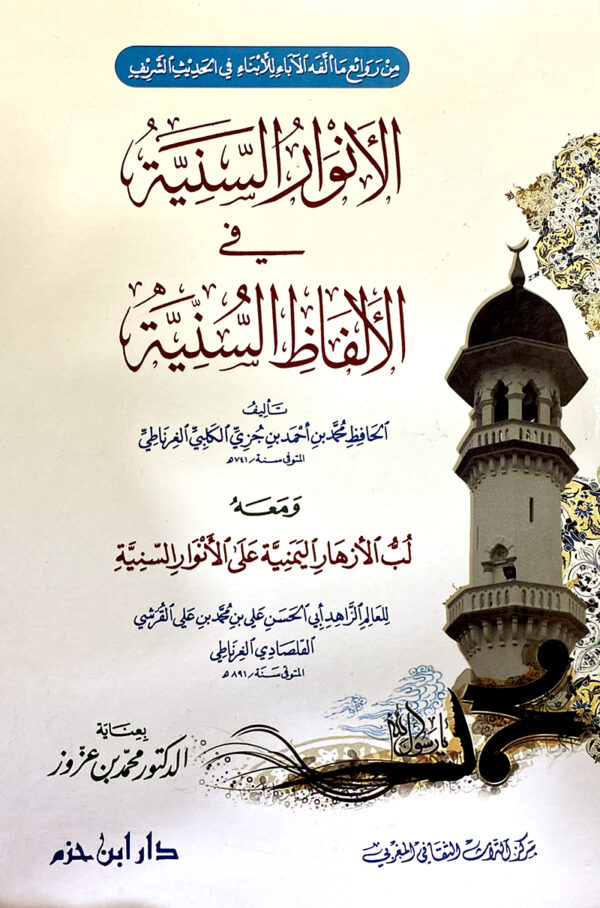 مِن رَوَائِع مَا أَلَّفَه الآبَاء لِلأَبْنَاءِ فِي الحَدِيْثِ الشَّرِيْفِ
الأَنْوَارُ السَّنِيَّةُ
فِي
الأَلْفَاظِ السُّنِّيَّةُ
تأليف
الحَافِظِ مُحَمَّد بن أَحْمَد بن جُزَيِّ الكَلْبِيِّ الغَرْنَاطِيِّ
المتوفى سنة ٧٤١/هـ
وَمَعَهُ
لُبُّ الأَزْهَارِ اليَمَنِيَّة عَلَى الأَنْوَارِ السَّنِيَّةِ
لِلعَالِمِ الزَّاهِدِ أَبِي الحَسَن عَلِي بن مُحَمَّد بن عَلِي القُرَشِي
القَلصَادِي الغَرْنَاطِي
المتوفى سنة ٨٩١/هـ
بعناية
الدكتور محمد بن عزوز
محمد
يا رسول الله
مركز التراث الثقافي المغربي
دار ابن حزم